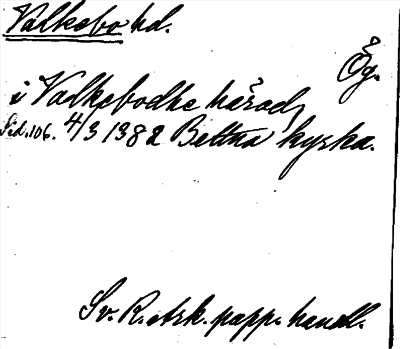 Valkebo hd.
Ög.
i Valkebodhe hærad,
Sid. 106. 4/3 1382 Bettna kyrka.
Sv. R. Ark. papp. handl.